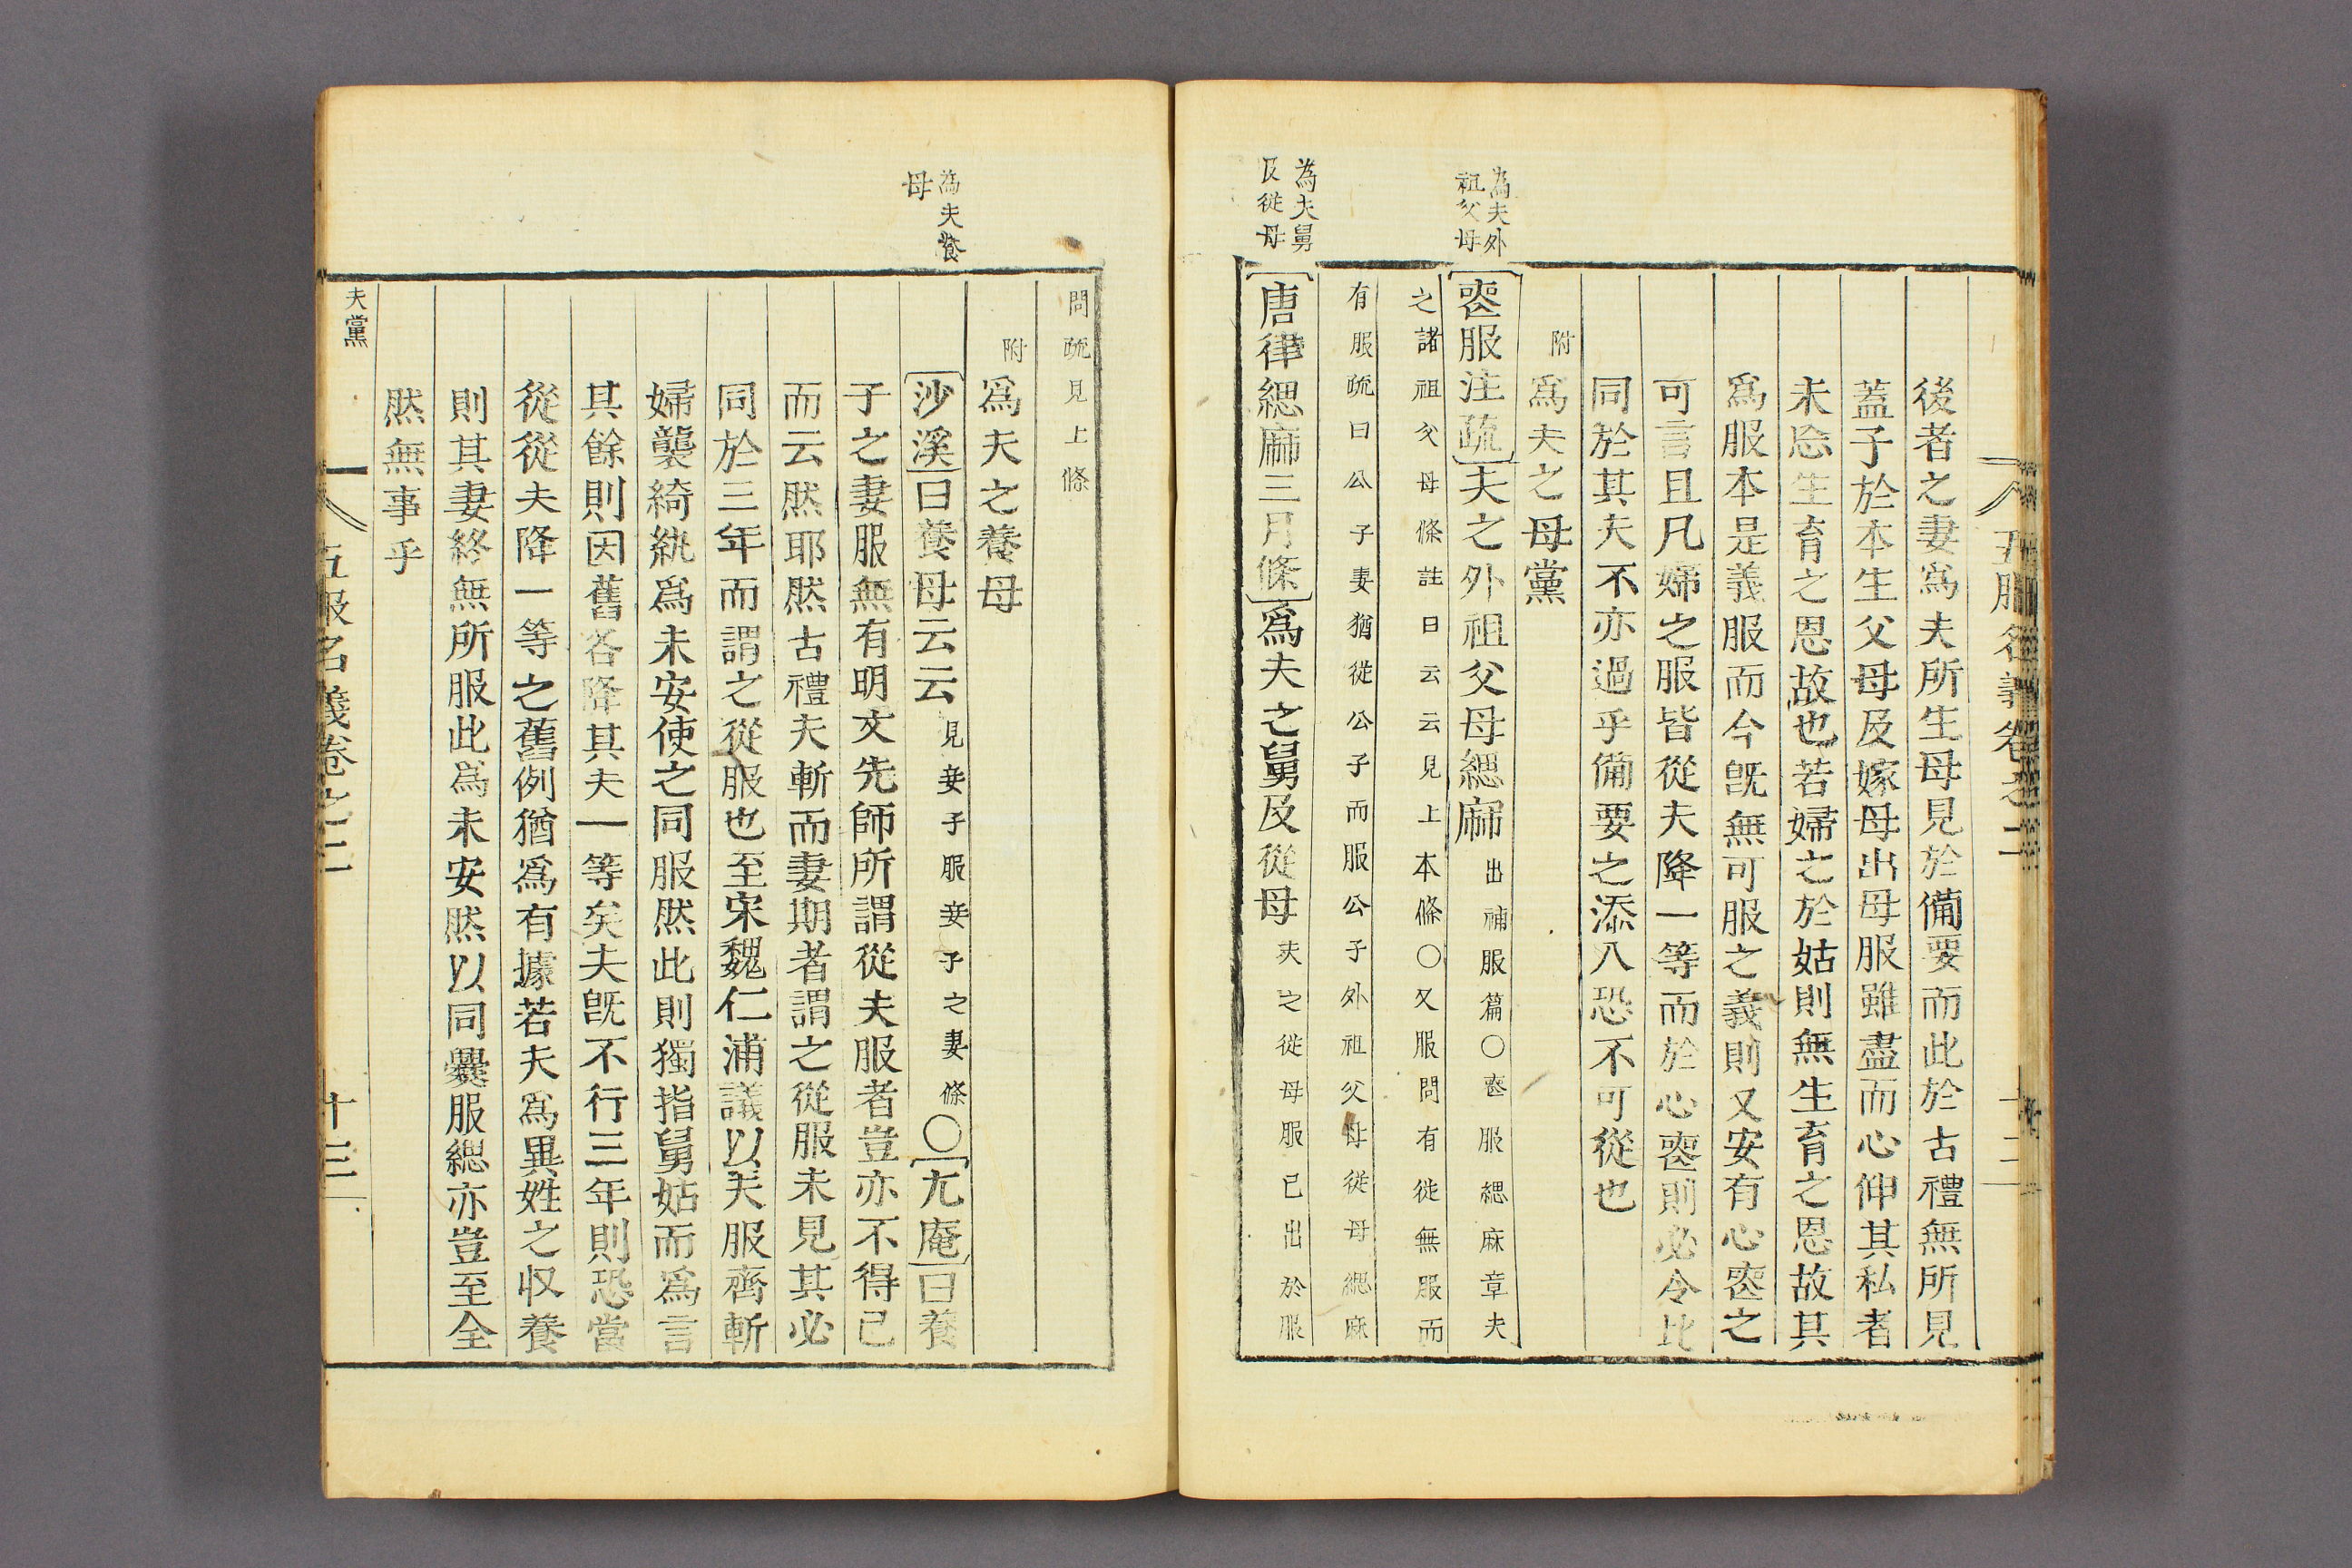 五服名義卷之二
十二
後者之妻爲夫所生母見於備要而此於古禮無所見
蓋子於本生父母及嫁母出母服雖盡而心伸其私者
未忘生育之恩故也若婦之於姑則無生育之恩故其
爲服本是義服而今旣無可服之義則又安有心喪之
可言且凡婦之服皆從夫降一等而於心喪則必令比
同於其夫不亦過乎備要之添入恐不可從也
附爲夫之母黨
爲夫外
祖父母
喪服注疏夫之外祖父母緦麻出補服篇○喪服緦麻章夫
之諸祖父母條註曰云云見上本條○又服問有從無服而
有服疏曰公子妻猶從公子而服公子外祖父母從母緦麻
爲夫舅
及從母
唐律緦麻三月條爲夫之舅及從母夫之從母服已出於服
問疏見上條
附爲夫之養母
爲夫養
母
沙溪曰養母云云見妾子服妾子之妻條○尤庵曰養
子之妻服無有明文先師所謂從夫服者豈亦不得已
而云然耶然古禮夫斬而妻期者謂之從服未見其必
同於三年而謂之從服也至宋魏仁浦議以夫服齊斬
婦襲綺紈爲未安使之同服然此則獨指舅姑而爲言
其餘則因舊各降其夫一等矣夫旣不行三年則恐當
從從夫降一等之舊例猶爲有據若夫爲異姓之収養
則其妻終無所服此爲未安然以同爨服緦亦豈至全
然無事乎
夫黨
五服名義卷之二
十三